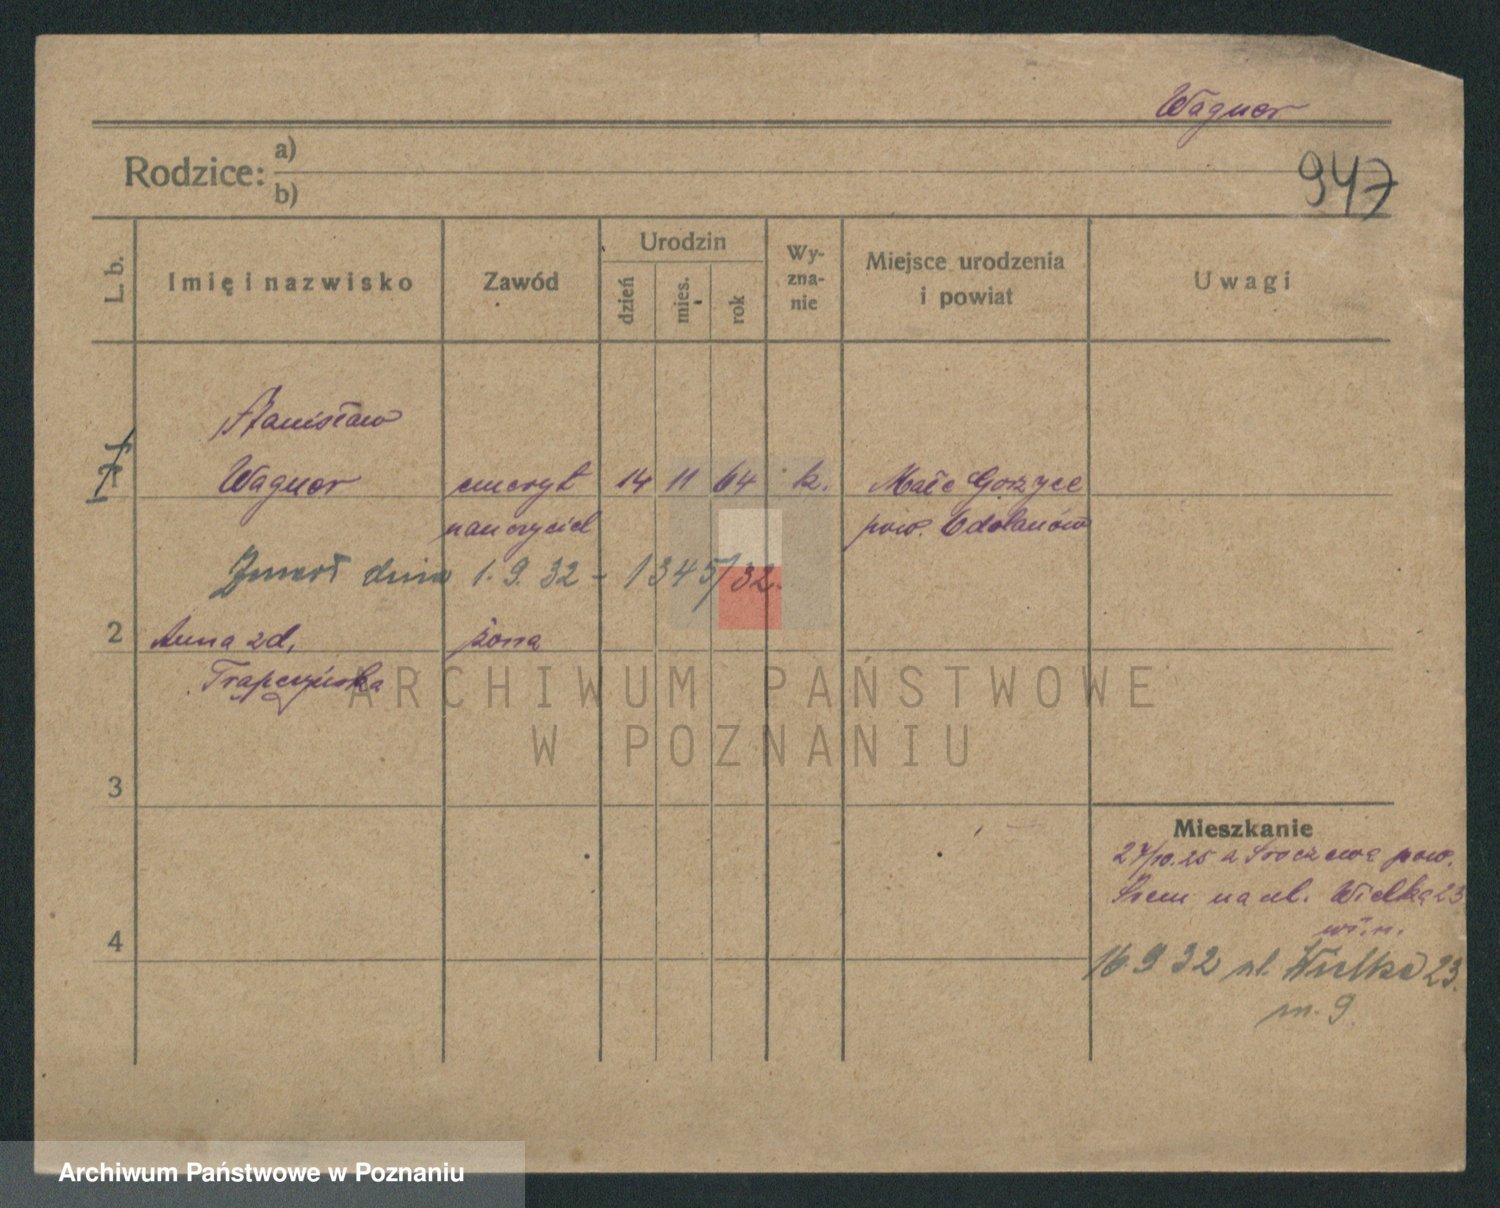 Wagner
947
Rodzice: a)
b)
L. b.
Imię i nazwisko
Zawód
Urodzin
dzień
mies.
rok
Wy-
zna-
nie
Miejsce urodzenia
i powiat
Uwagi
Stanisław
1 Wagner emeryt 14 11 64 k. Małe Gorzyce
nauczyciel pow. Odolanów
Zmarł dnia 1.9.32 - 1345/32.
2 Anna zd. żona
Trąpczyńska
3
4
Mieszkanie
27/10.25 z pow.
Śrem na ul. Wielką 23
16.9.32 ul. Wielka 23.
m. 9
ARCHIWUM PAŃSTWOWE
W POZNANIU
Archiwum Państwowe w Poznaniu